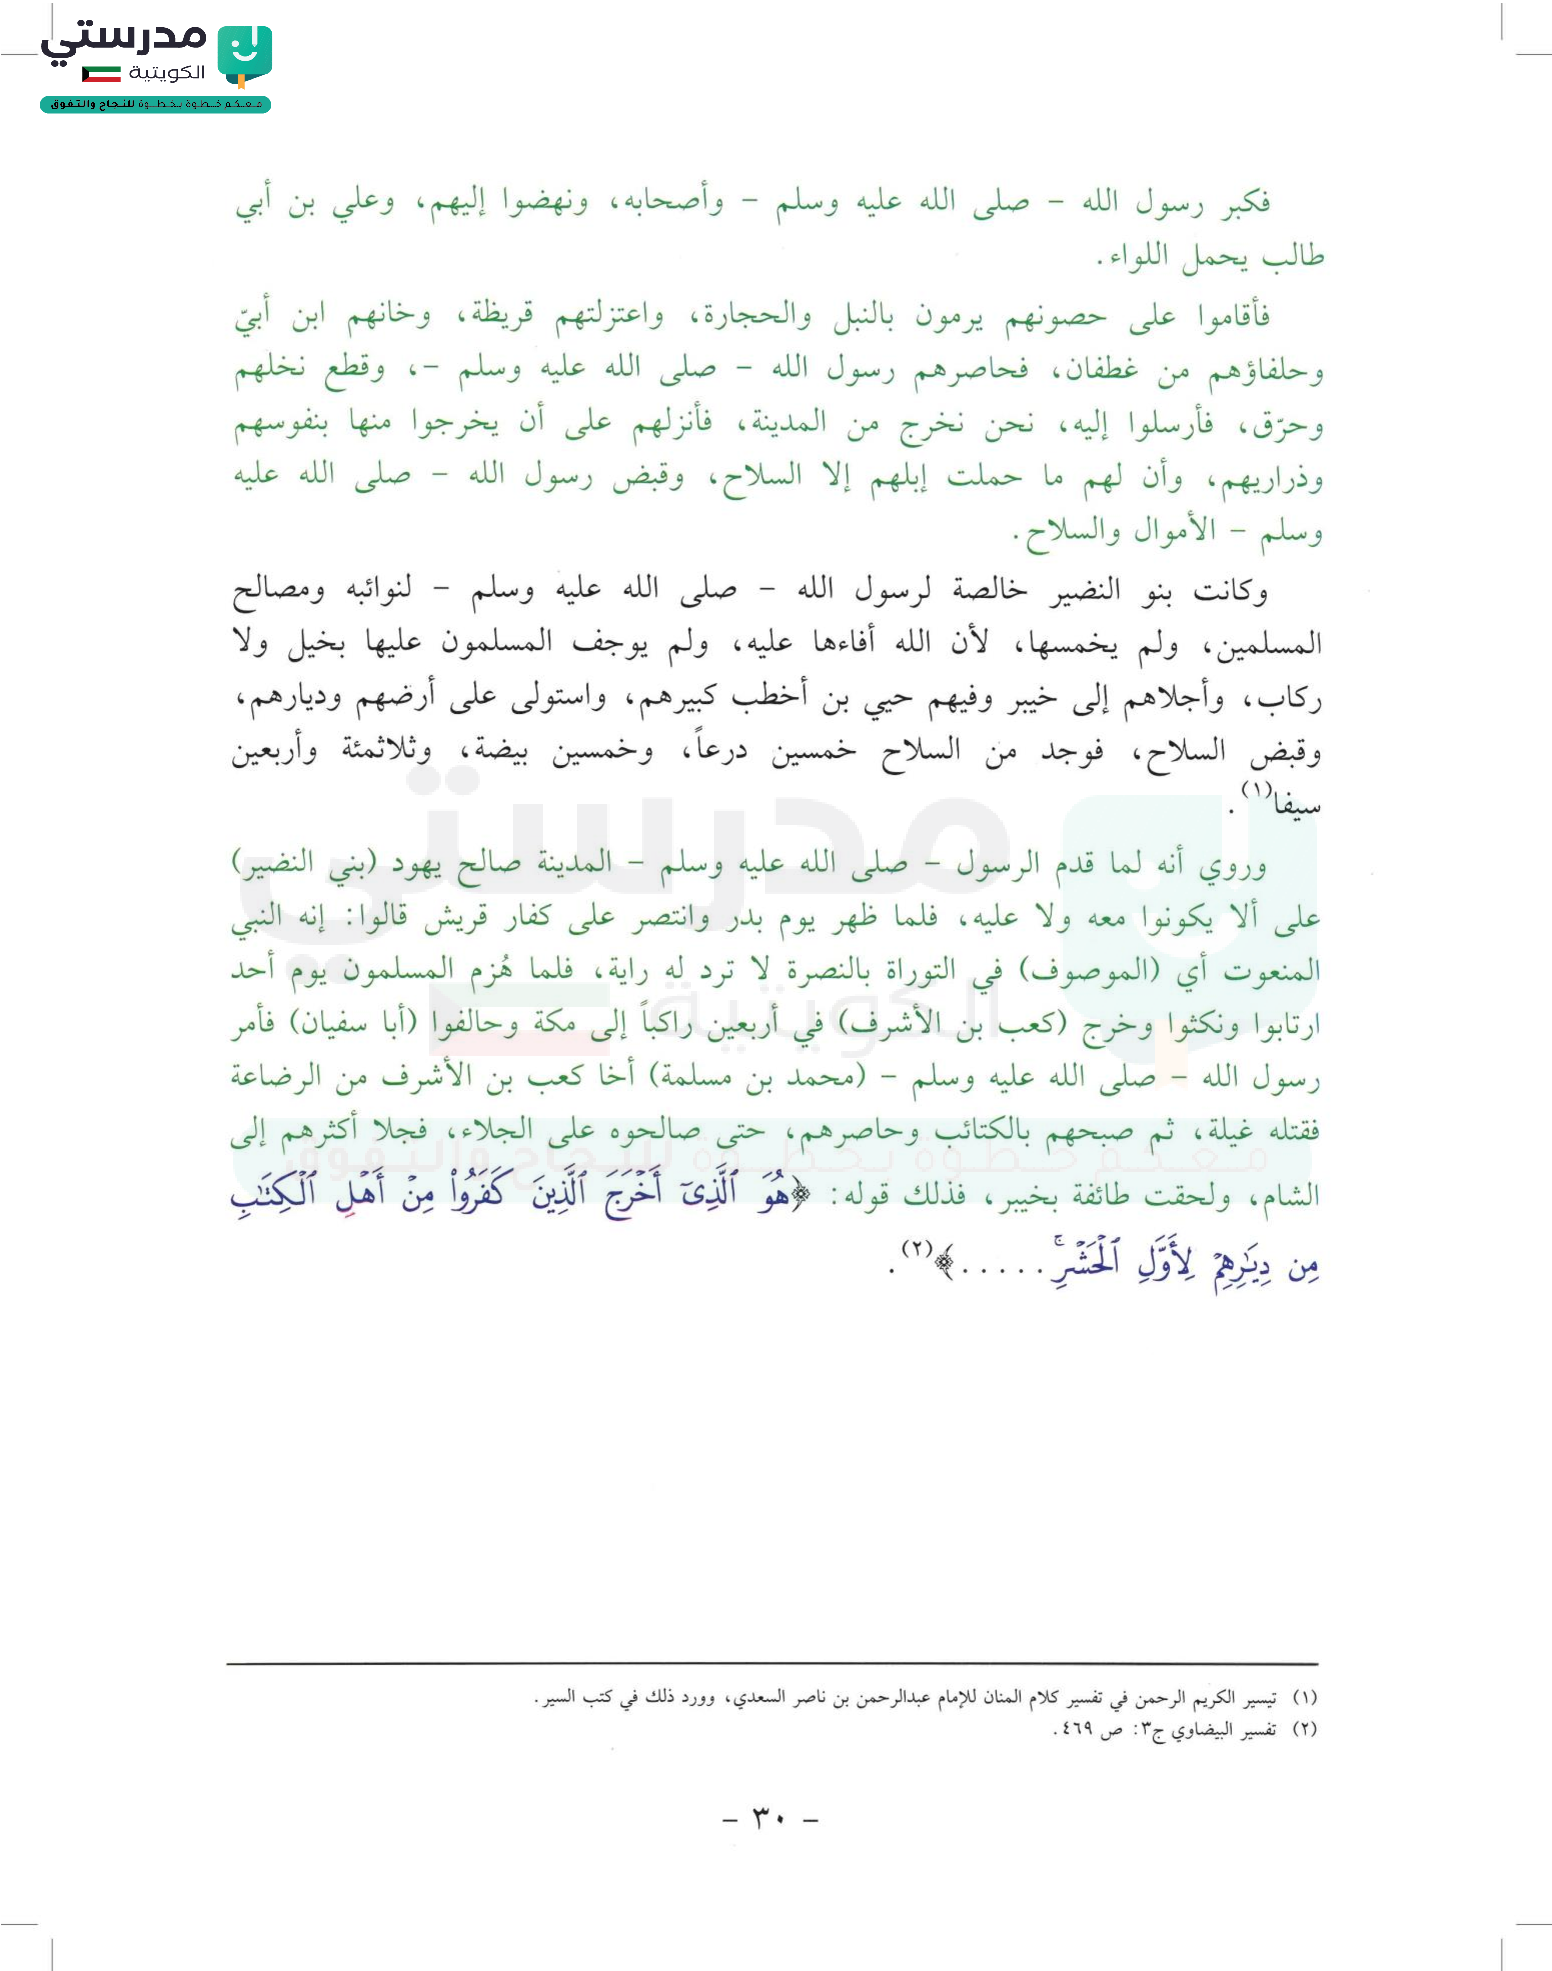 مدرستي
الكويتية
معكم خطوة بخطوة للنجاح والتفوق
فكبر رسول الله - صلى الله عليه وسلم - وأصحابه، ونهضوا إليهم، وعلي بن أبي
طالب يحمل اللواء.
فأقاموا على حصونهم يرمون بالنبل والحجارة، واعتزلتهم قريظة، وخانهم ابن أبيّ
وحلفاؤهم من غطفان، فحاصرهم رسول الله - صلى الله عليه وسلم -، وقطع نخلهم
وحرّق، فأرسلوا إليه، نحن نخرج من المدينة، فأنزلهم على أن يخرجوا منها بنفوسهم
وذراريهم، وأن لهم ما حملت إبلهم إلا السلاح، وقبض رسول الله - صلى الله عليه
وسلم - الأموال والسلاح.
وكانت بنو النضير خالصة لرسول الله - صلى الله عليه وسلم - لنوائبه ومصالح
المسلمين، ولم يخمسها، لأن الله أفاءها عليه، ولم يوجف المسلمون عليها بخيل ولا
ركاب، وأجلاهم إلى خيبر وفيهم حيي بن أخطب كبيرهم، واستولى على أرضهم وديارهم،
وقبض السلاح، فوجد من السلاح خمسين درعاً، وخمسين بيضة، وثلاثمئة وأربعين
سيفا(١).
وروي أنه لما قدم الرسول - صلى الله عليه وسلم - المدينة صالح يهود (بني النضير)
على ألا يكونوا معه ولا عليه، فلما ظهر يوم بدر وانتصر على كفار قريش قالوا: إنه النبي
المنعوت أي (الموصوف) في التوراة بالنصرة لا ترد له راية، فلما هُزم المسلمون يوم أحد
ارتابوا ونكثوا وخرج (كعب بن الأشرف) في أربعين راكباً إلى مكة وحالفوا (أبا سفيان) فأمر
رسول الله - صلى الله عليه وسلم - (محمد بن مسلمة) أخا كعب بن الأشرف من الرضاعة
فقتله غيلة، ثم صبحهم بالكتائب وحاصرهم، حتى صالحوه على الجلاء، فجلا أكثرهم إلى
الشام، ولحقت طائفة بخيبر، فذلك قوله: ﴿هُوَ ٱلَّذِىٓ أَخۡرَجَ ٱلَّذِينَ كَفَرُواْ مِنۡ أَهۡلِ ٱلۡكِتَٰبِ
مِن دِيَٰرِهِمۡ لِأَوَّلِ ٱلۡحَشۡرِۚ .....﴾(٢).
(١) تيسير الكريم الرحمن في تفسير كلام المنان للإمام عبدالرحمن بن ناصر السعدي، وورد ذلك في كتب السير.
(٢) تفسير البيضاوي ج٣: ص ٤٦٩.
- ٣٠ -